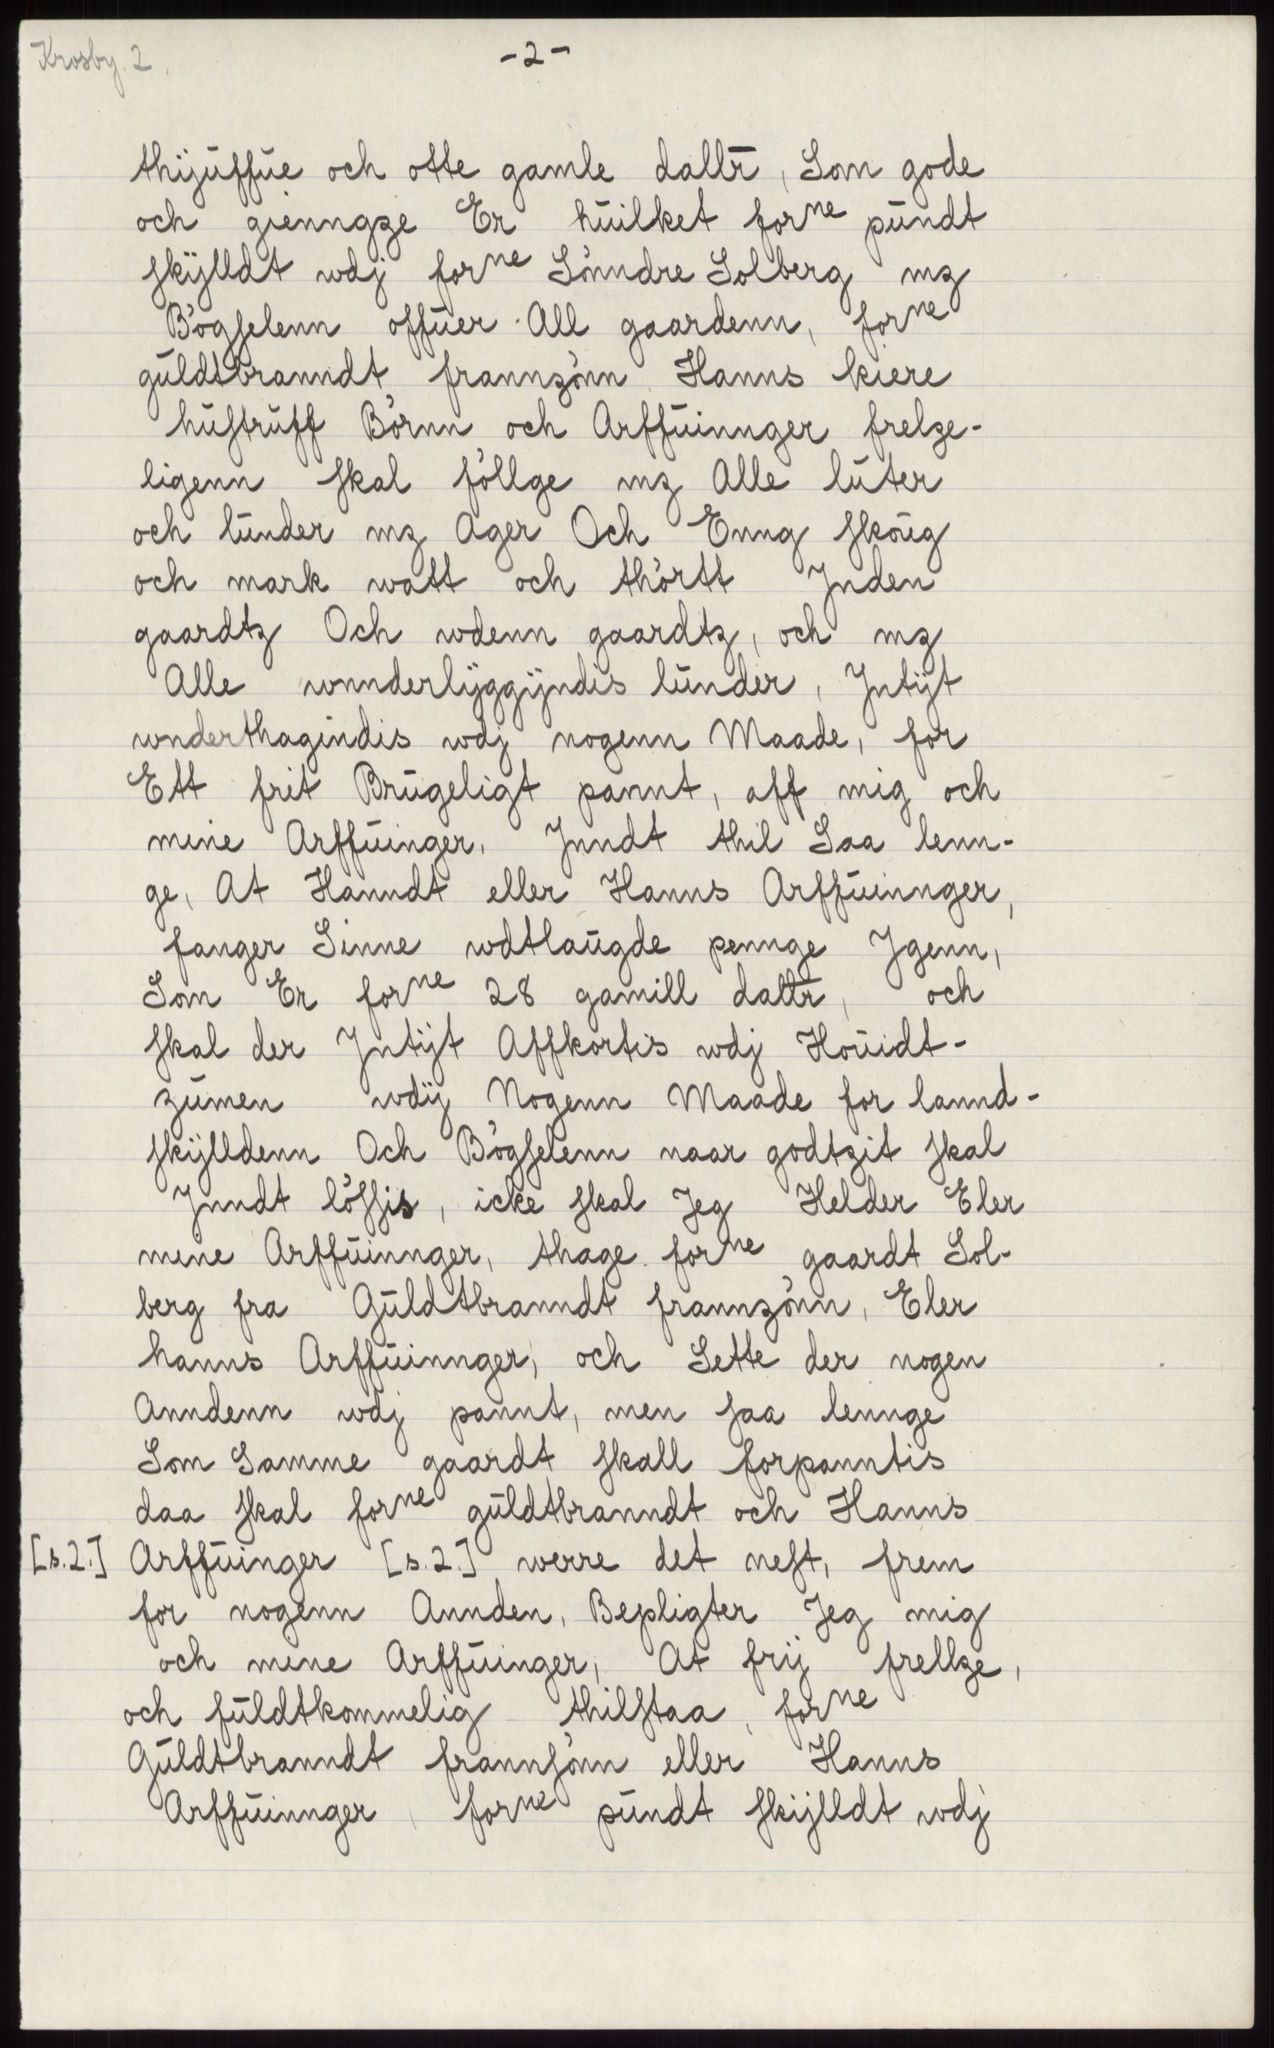 Krosby. 2.
-2-
thijuffue och otte gamle dallr, Som gode
och gienngze Er huilket forne pundt
skÿlldt wdj forne Sönndre Solberg mz
Bögsselenn offuer All gaardenn, forne
guldtbranndt frannzönn Hanns kiere
hustruff Börnn och Arffuinnger frelze-
ligenn skal föllge mz Alle luter
och lunder mz Ager Och Enng skoug
och mark watt och thörtt Jnden
gaardtz Och wdenn gaardtz, och mz
Alle wnnderlÿggÿndis lunder, Jntÿt
wnderthagindis wdj nogenn Maade, for
Ett frit Brugeligt pannt, aff mig och
mine Arffuinger, Jnndt thil Saa lenn-
ge, At Hanndt eller Hanns Arffuinnger,
fanger Sinne wdtlaugde pennge Jgenn,
Som Er forne 28 gamill dallr, och
skal der Jntÿt Affkortis wdj Houidt-
zumen wdÿ Nogenn Maade for lannd-
skÿlldenn Och Bögsselenn naar godtzit skal
Jnndt lössis, icke skal Jeg Helder Eler
mine Arffuinnger, thage forne gaardt Sol-
berg fra Guldtbranndt frannzönn, Eler
hanns Arffuinnger, och Sette der nogen
Anndenn wdj pannt, men saa lennge
Som Samme gaardt skall forpanntis
daa skal forne guldtbranndt och Hanns
[s.2.] Arffuinger [s.2.] werre det nest, frem
for nogenn Annden, Bepligter Jeg mig
och mine Arffuinger, At frÿ frellze,
och fuldtkommelig thilstaa, forne
Guldtbranndt frannsönn eller Hanns
Arffuinnger, forne pundt skÿlldt wdj